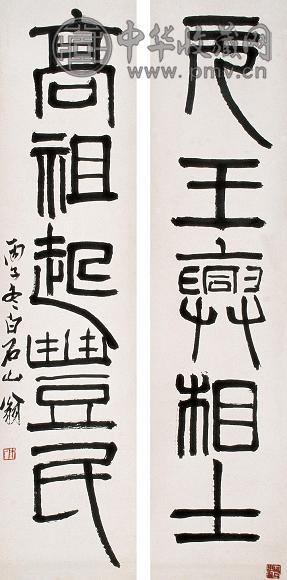 中华收藏网
www.pmv.cn
辰王興相土
高祖起豐民
丙子冬白石山翁